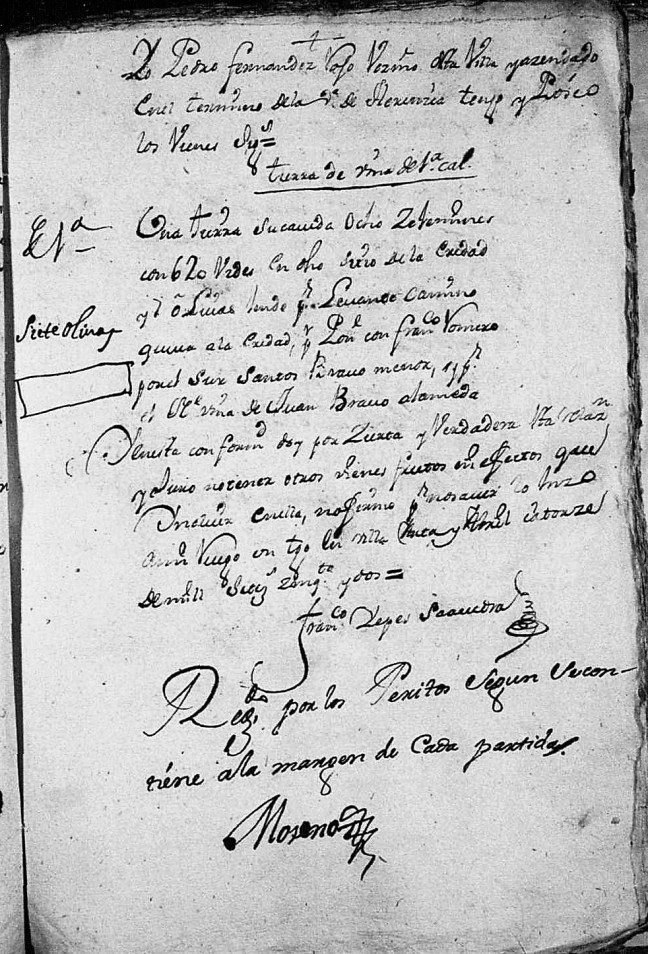 +
Yo Pedro fernandez Vezino desta Villa y azendado
en el termino dela va de tengo y Poseo
los Vienes Sigs=
tierra de viña de 1ª cal.
de 1ª
Una tierra su cavida Ocho Zelemines
con 620 Vides en dho sitio de la Ciudad
y 7 linde pr Levante Camino
Siete olivas
que va ala Ciudad, y Ponte con franco Romero
por el Sur Santos Bravo menor, y pr
el Nte viña de Juan Bravo alameda
En esta conformd doy por Zierta y Verdadera esta relazn
y Juro no tener otros vienes frutos ni efectos que
Yncluir en ella, no firmo pr no saver lo hizo
a mi Ruego un tgo en villa y Abril catorze
de mill Setezs Zinqta y dos=
Franco Yepes Saavedra
Regdo por los Peritos Segun se con-
tiene ala margen de Cada partida.
Moreno